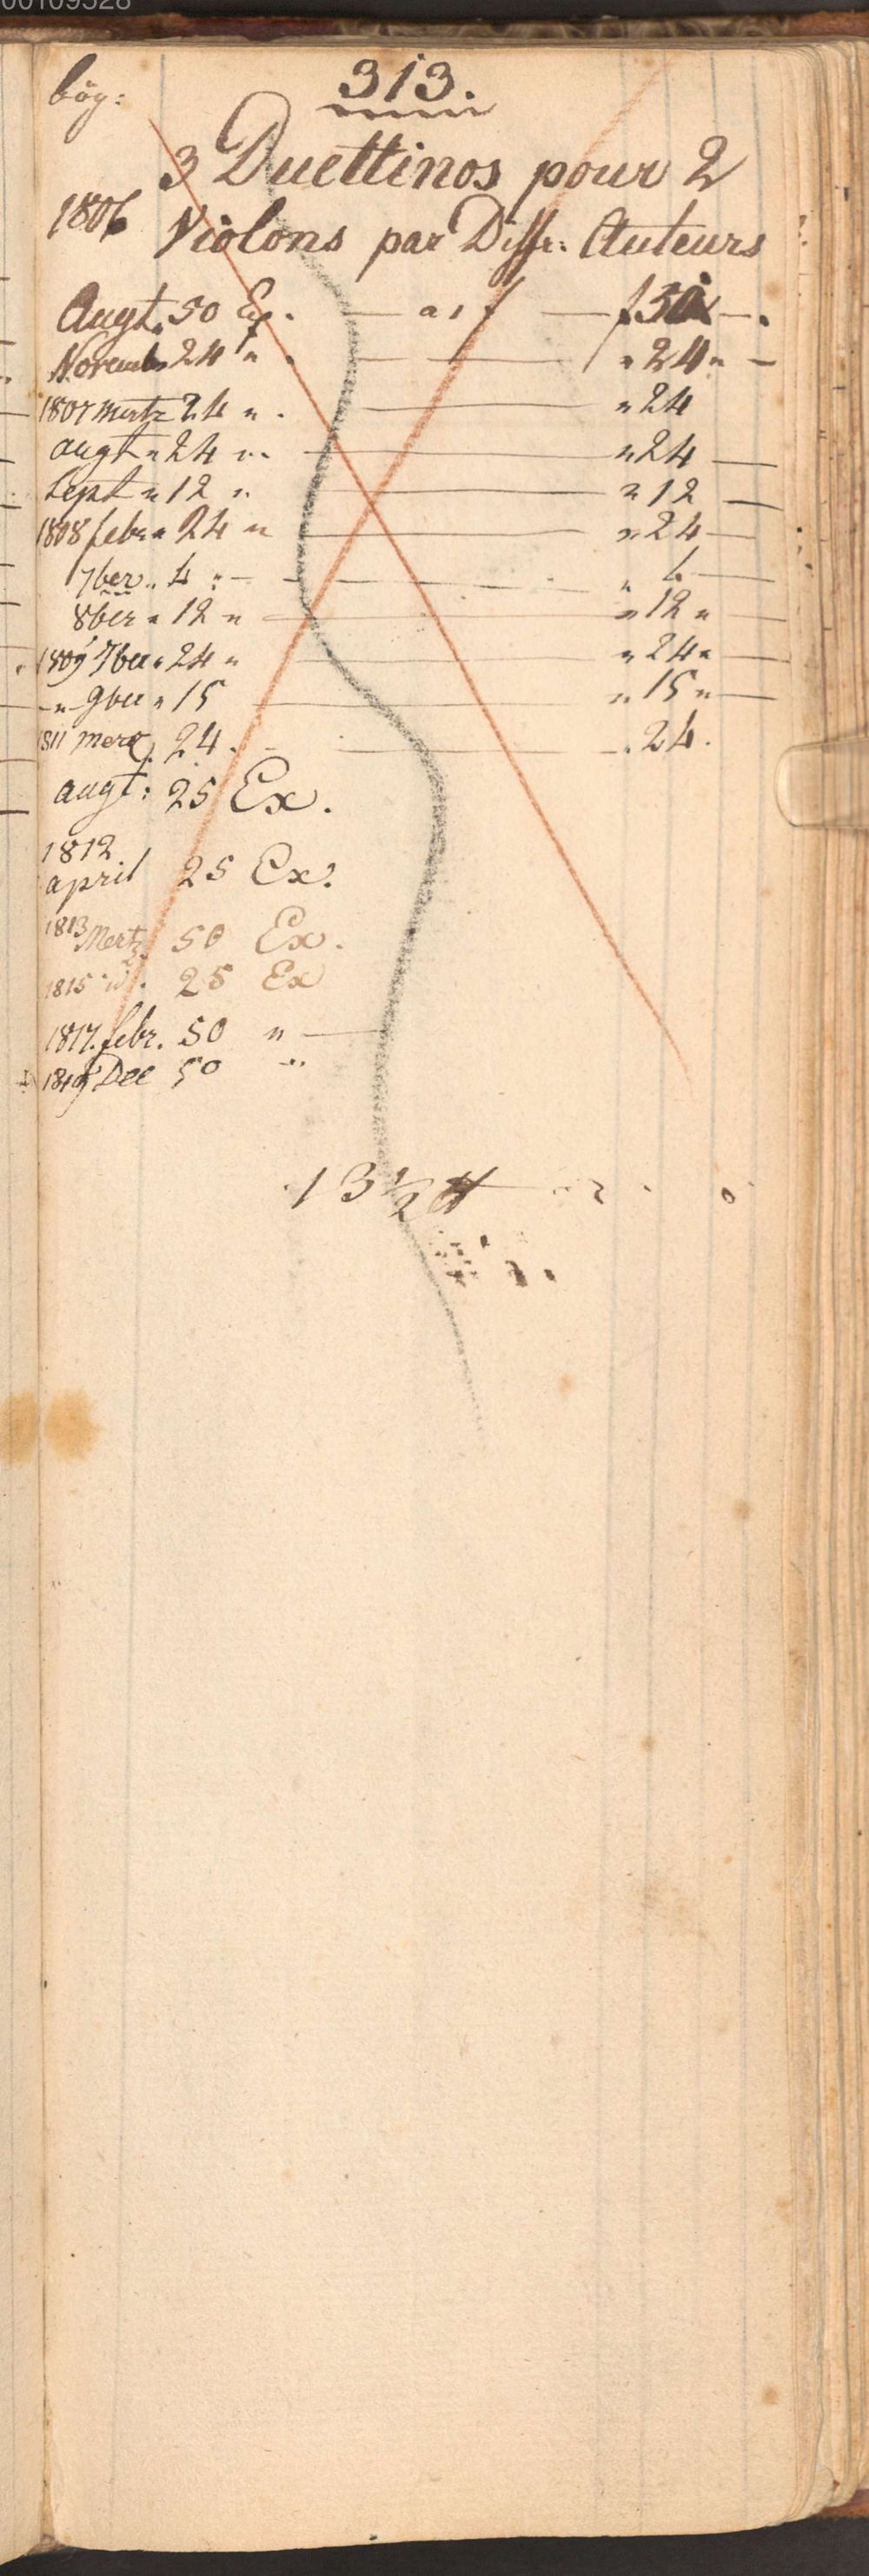 00109528
313.
bög:
3 Duettinos pour 2
1806 Violons par Diffr: Auteurs
Augt. 50 Ex. — a 1 f — f 50 —.
Novemb 24 " . — " 24 " —
1807 Mertz 24 " . — " 24
augt " 24 " . — " 24 —
Sept " 12 " — " 12 —
1808 febr " 24 " — " 24 —
7ber " 4 " — — "
8ber " 12 " — " 12 "
1809 7ber " 24 " — " 24 " —
" 9ber " 15 — " 15 " —
1811 Merz 24. — " 24.
augt: 25 Ex.
1812
april 25 Ex.
1813 Mertz 50 Ex.
1815 " 25 Ex
1817. febr. 50 " —
1819 Dec 50 "
13 1/2 ℔